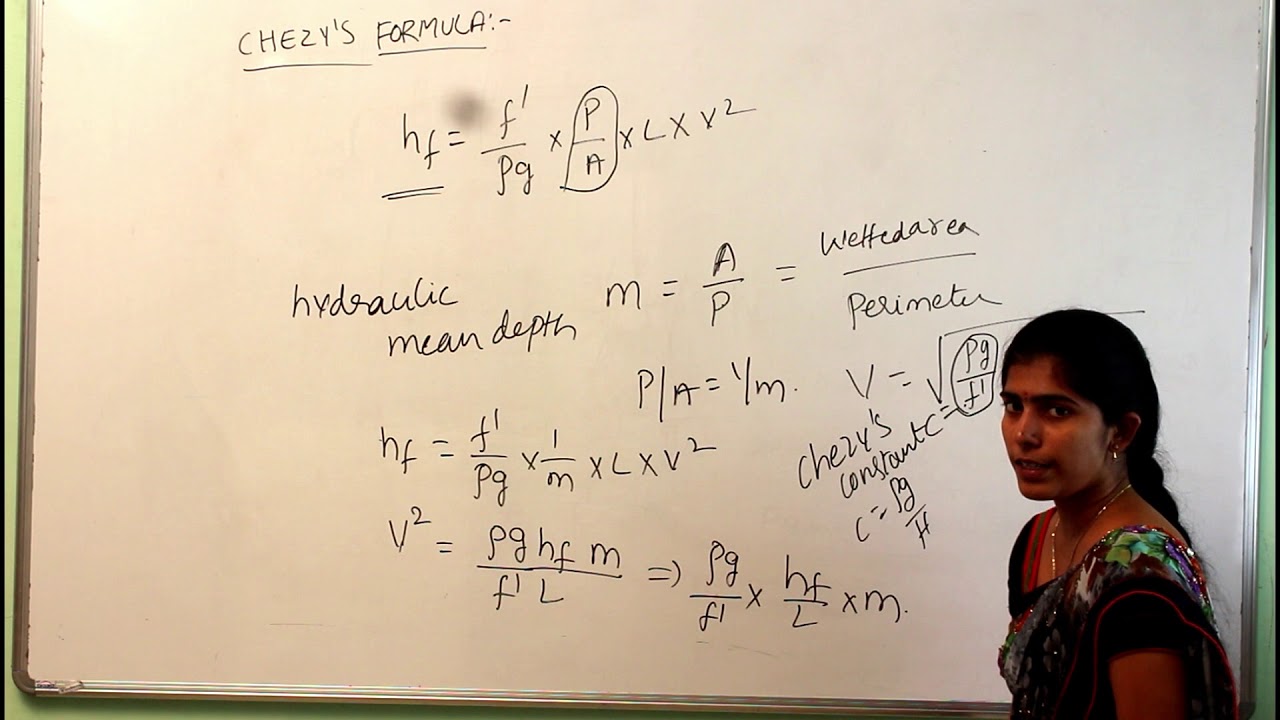 CHEZY'S FORMULA:-
hf = f'/ρg × P/A × L × V²
hydraulic mean depth
m = A/P = Wetted area / Perimeter
P/A = 1/m.
V = √ρg/f'
Chezy's constant C =
C = ρg/f'
hf = f'/ρg × 1/m × L × V²
V² = ρg hf m / f' L ⇒ ρg/f' × hf/L × m.